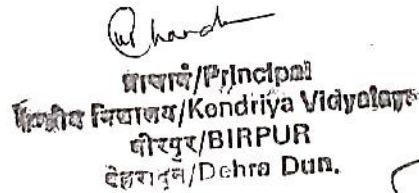 प्राचार्य/Principal
केन्द्रीय विद्यालय/Kendriya Vidyalaya
बीरपुर/BIRPUR
देहरादून/Dehra Dun.